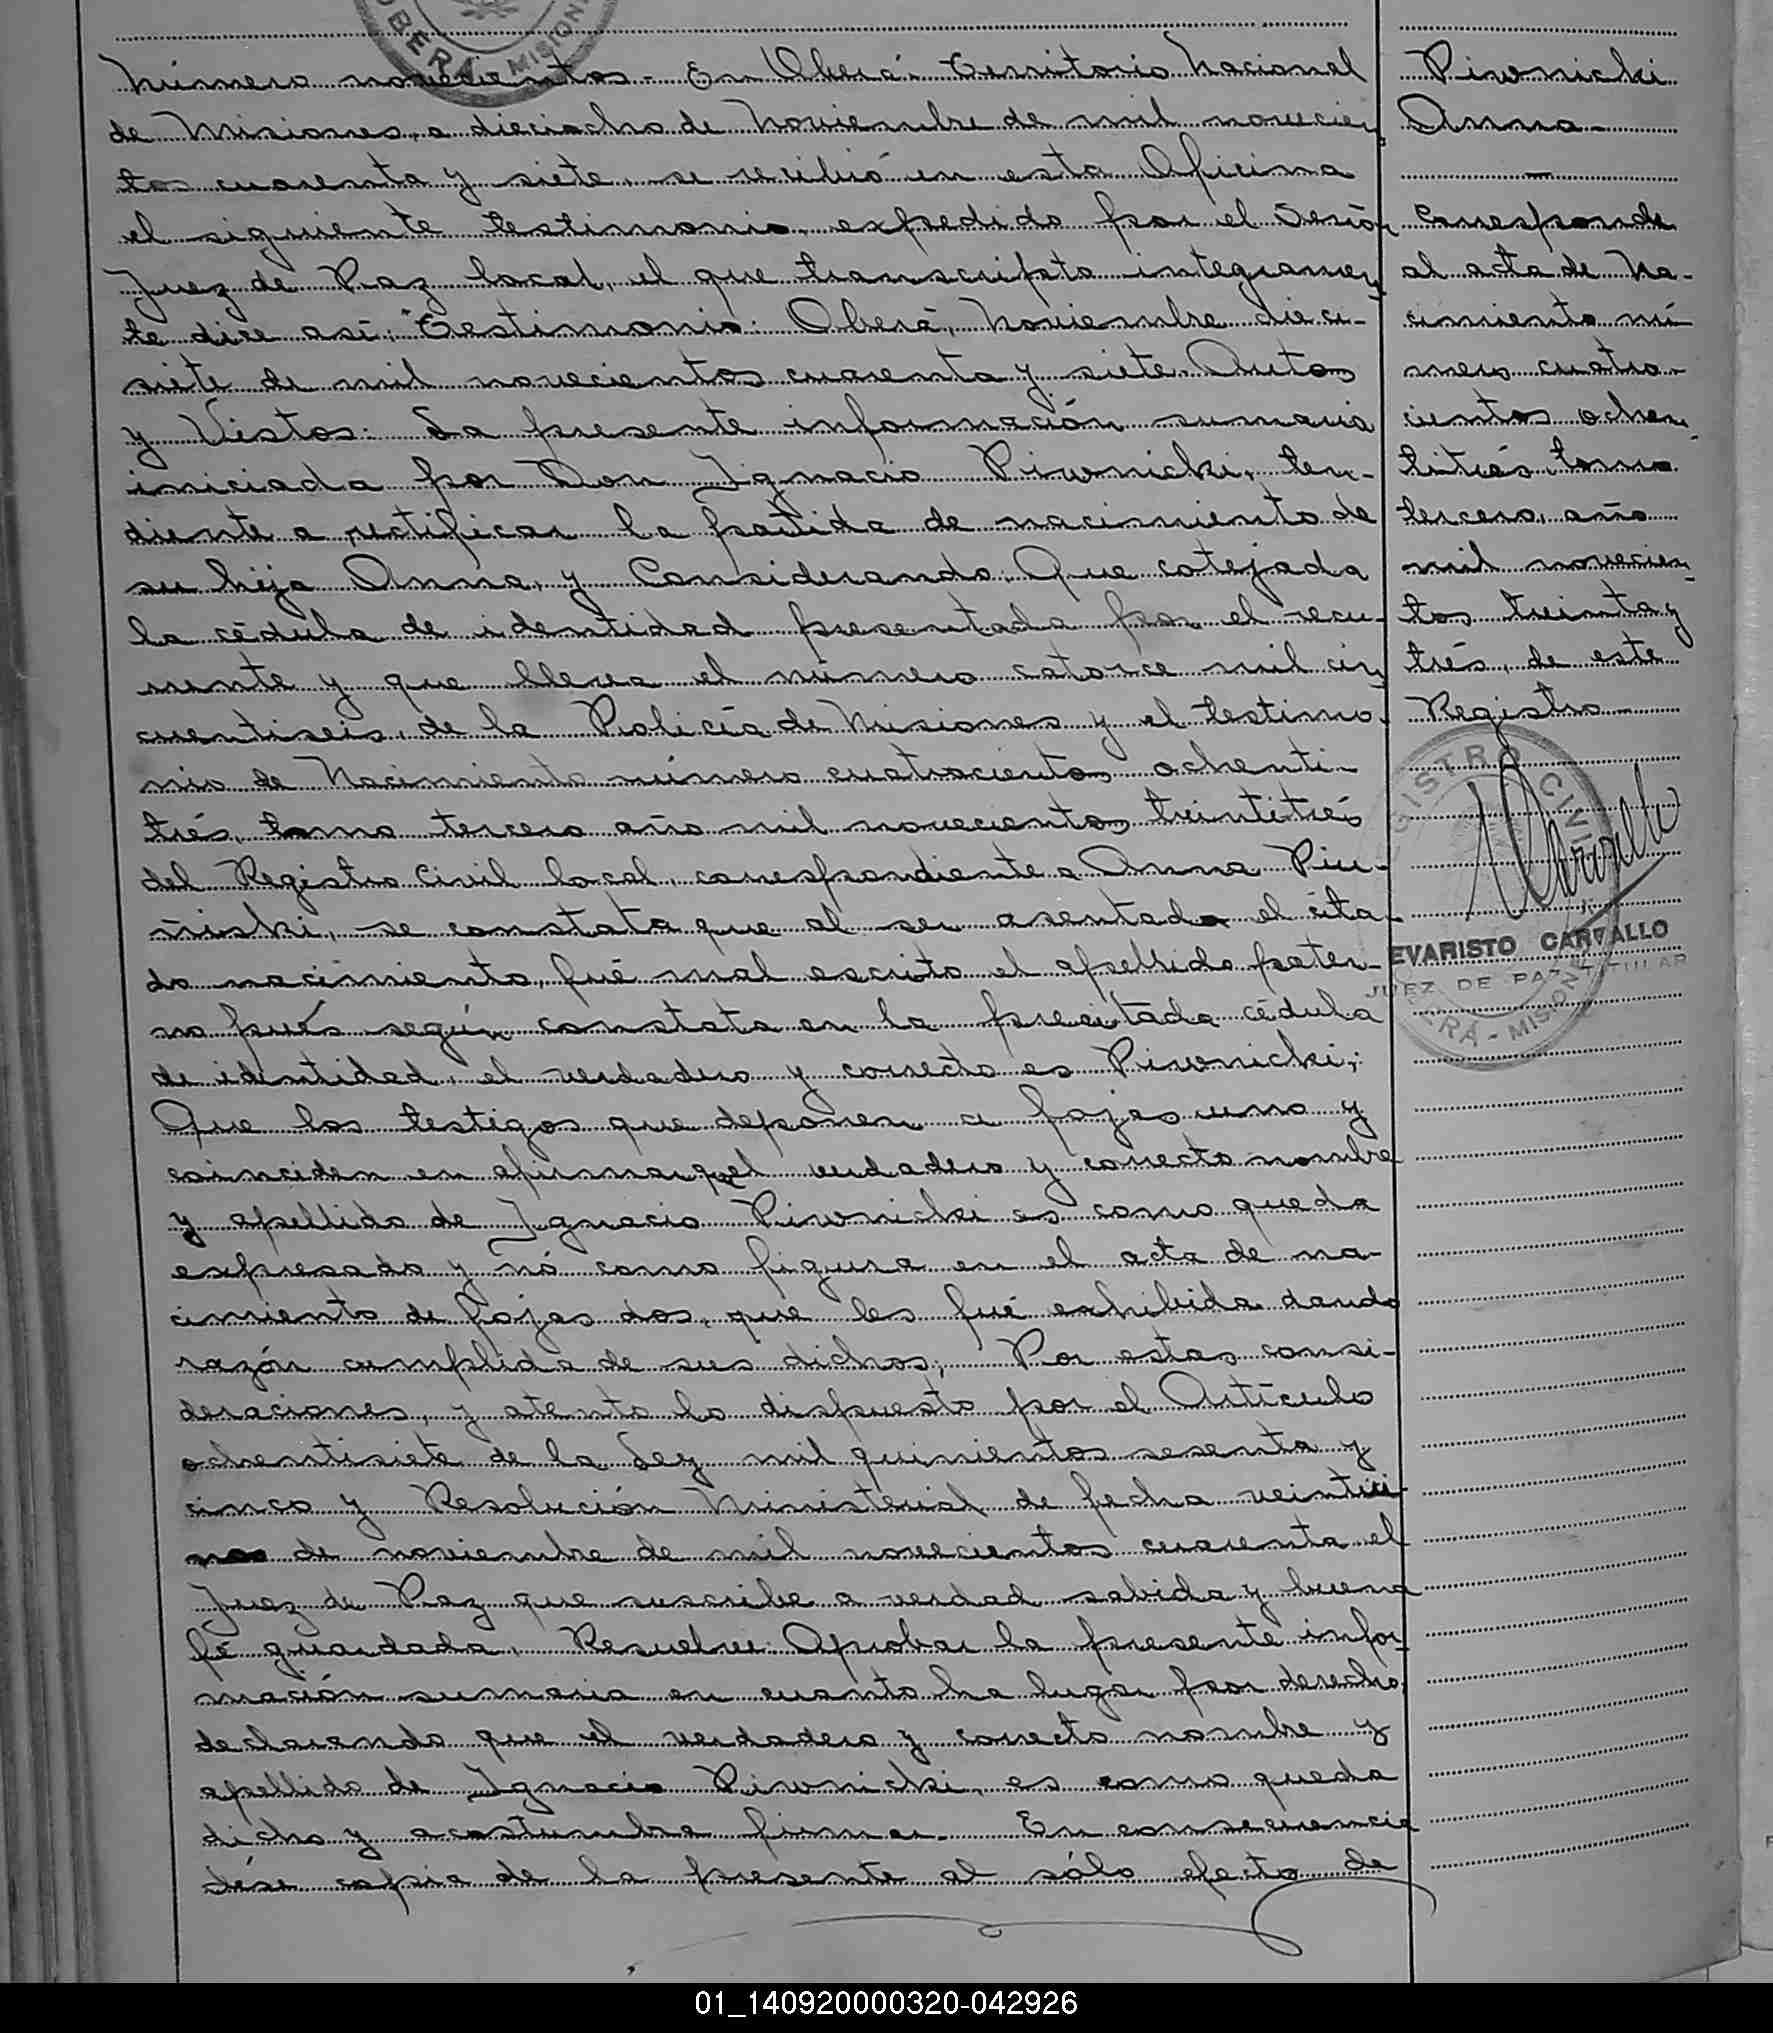 OBERÁ - MISIONES
Número novecientos - En Oberá. Territorio Nacional
de Misiones, a dieciocho de Noviembre de mil novecien
tos cuarenta y siete, se recibió en esta Oficina
el siguiente testimonio, expedido por el Señor
Juez de Paz local, el que transcripto integramen
te dice así: "Testimonio: Oberá, Noviembre dieci-
siete de mil novecientos cuarenta y siete. Autos
y Vistos: La presente información sumaria
iniciada por Don Ignacio Piwnicki, ten-
diente a rectificar la partida de nacimiento de
su hija Anna, y Considerando: Que cotejada
la cédula de identidad presentada por el recu-
rrente y que lleva el número catorce mil cin
cuentiseis, de la Policía de Misiones y el testimo-
nio de Nacimiento número cuatrocientos ochenti-
trés, tomo tercero año mil novecientos treintitrés
del Registro Civil local, correspondiente a Anna Piu-
ñiski, se constata que al ser asentado el cita-
do nacimiento, fué mal escrito el apellido pater-
no pués según constata en la precitada cédula
de identidad, el verdadero y correcto es Piwnicki;
Que los testigos que deponen a fojas uno y
coinciden en afirmar que el verdadero y correcto nombre
y apellido de Ignacio Piwnicki es como queda
expresado y nó como figura en el acta de na-
cimiento de fojas dos, que les fué exhibida dando
razón cumplida de sus dichos; Por estas consi-
deraciones, y atento lo dispuesto por el Artículo
ochentisiete de la Ley mil quinientos sesenta y
cinco y Resolución Ministerial de fecha veintiu-
no de noviembre de mil novecientos cuarenta el
Juez de Paz que suscribe a verdad sabida y buena
fé guardada, Resuelve: Aprobar la presente infor-
mación sumaria en cuanto ha lugar por derecho,
declarando que el verdadero y correcto nombre y
apellido de Ignacio Piwnicki, es como queda
dicho y acostumbra firmar. En consecuencia
dése copia de la presente al sólo efecto de
Piwnicki
Anna-
Corresponde
al acta de Na-
cimiento nú
mero cuatro-
cientos ochen
titrés, tomo
tercero, año
mil novecien
tos treinta y
trés, de este
Registro-
REGISTRO CIVIL
OBERÁ - MISIONES
EVARISTO CARVALLO
JUEZ DE PAZ TITULAR
01_140920000320-042926